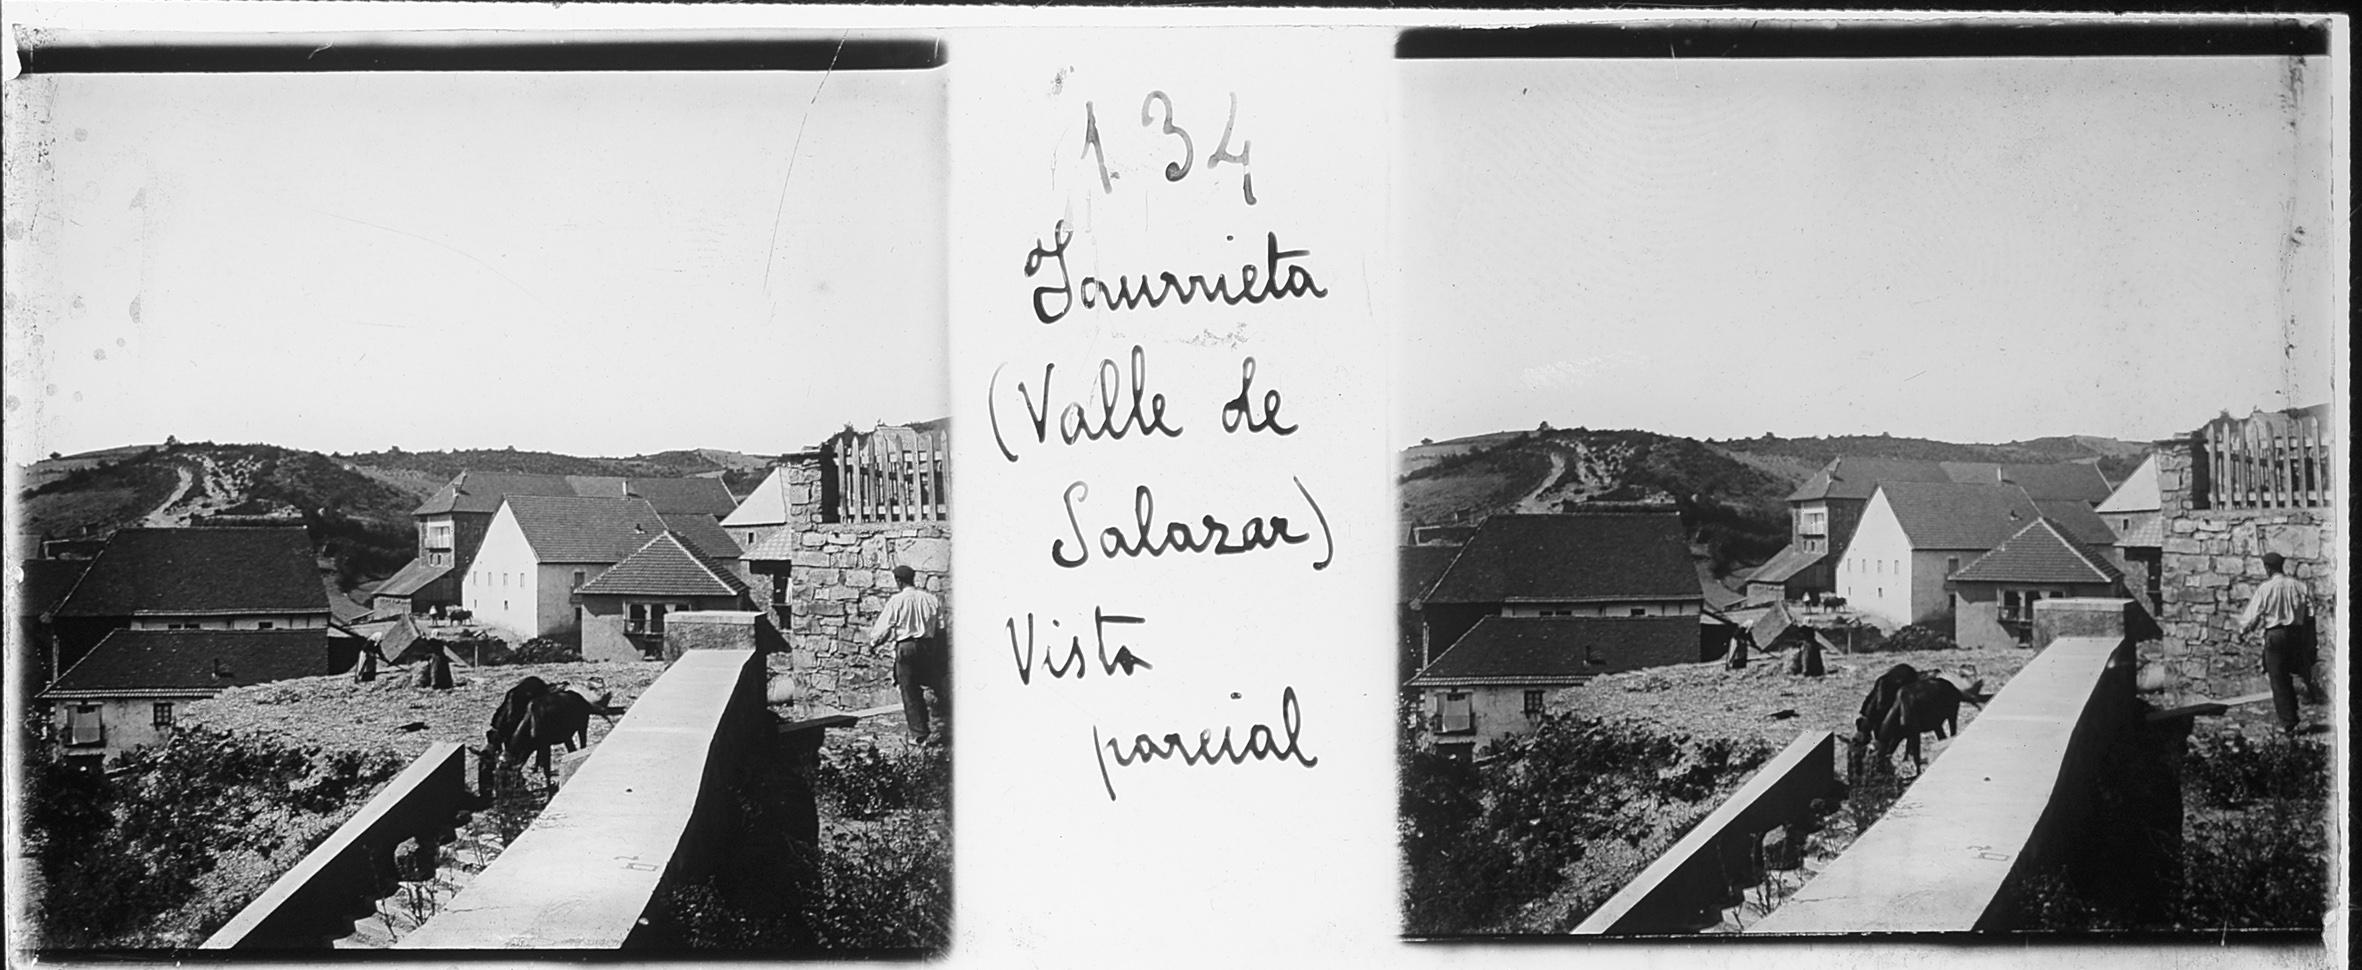 134
Jaurrieta
(Valle de
Salazar)
Vista
parcial